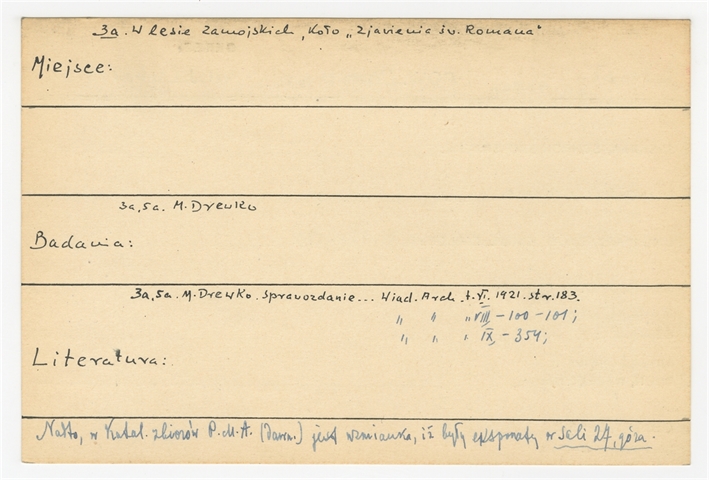 3a. W lesie Zamojskich, koło „Zjawienia św. Romana"
Miejsce:
3a, 5a. M. Drewko
Badania:
3a, 5a. M. Drewko. Sprawozdanie... Wiad. Arch. t. VI. 1921. str. 183.
" " " VIII - 100 - 101;
" " " IX, - 354;
Literatura:
Nadto, w Katal. zbiorów P.M.A. (dawn.) jest wzmianka, iż były eksponaty w Sali 24, góra.